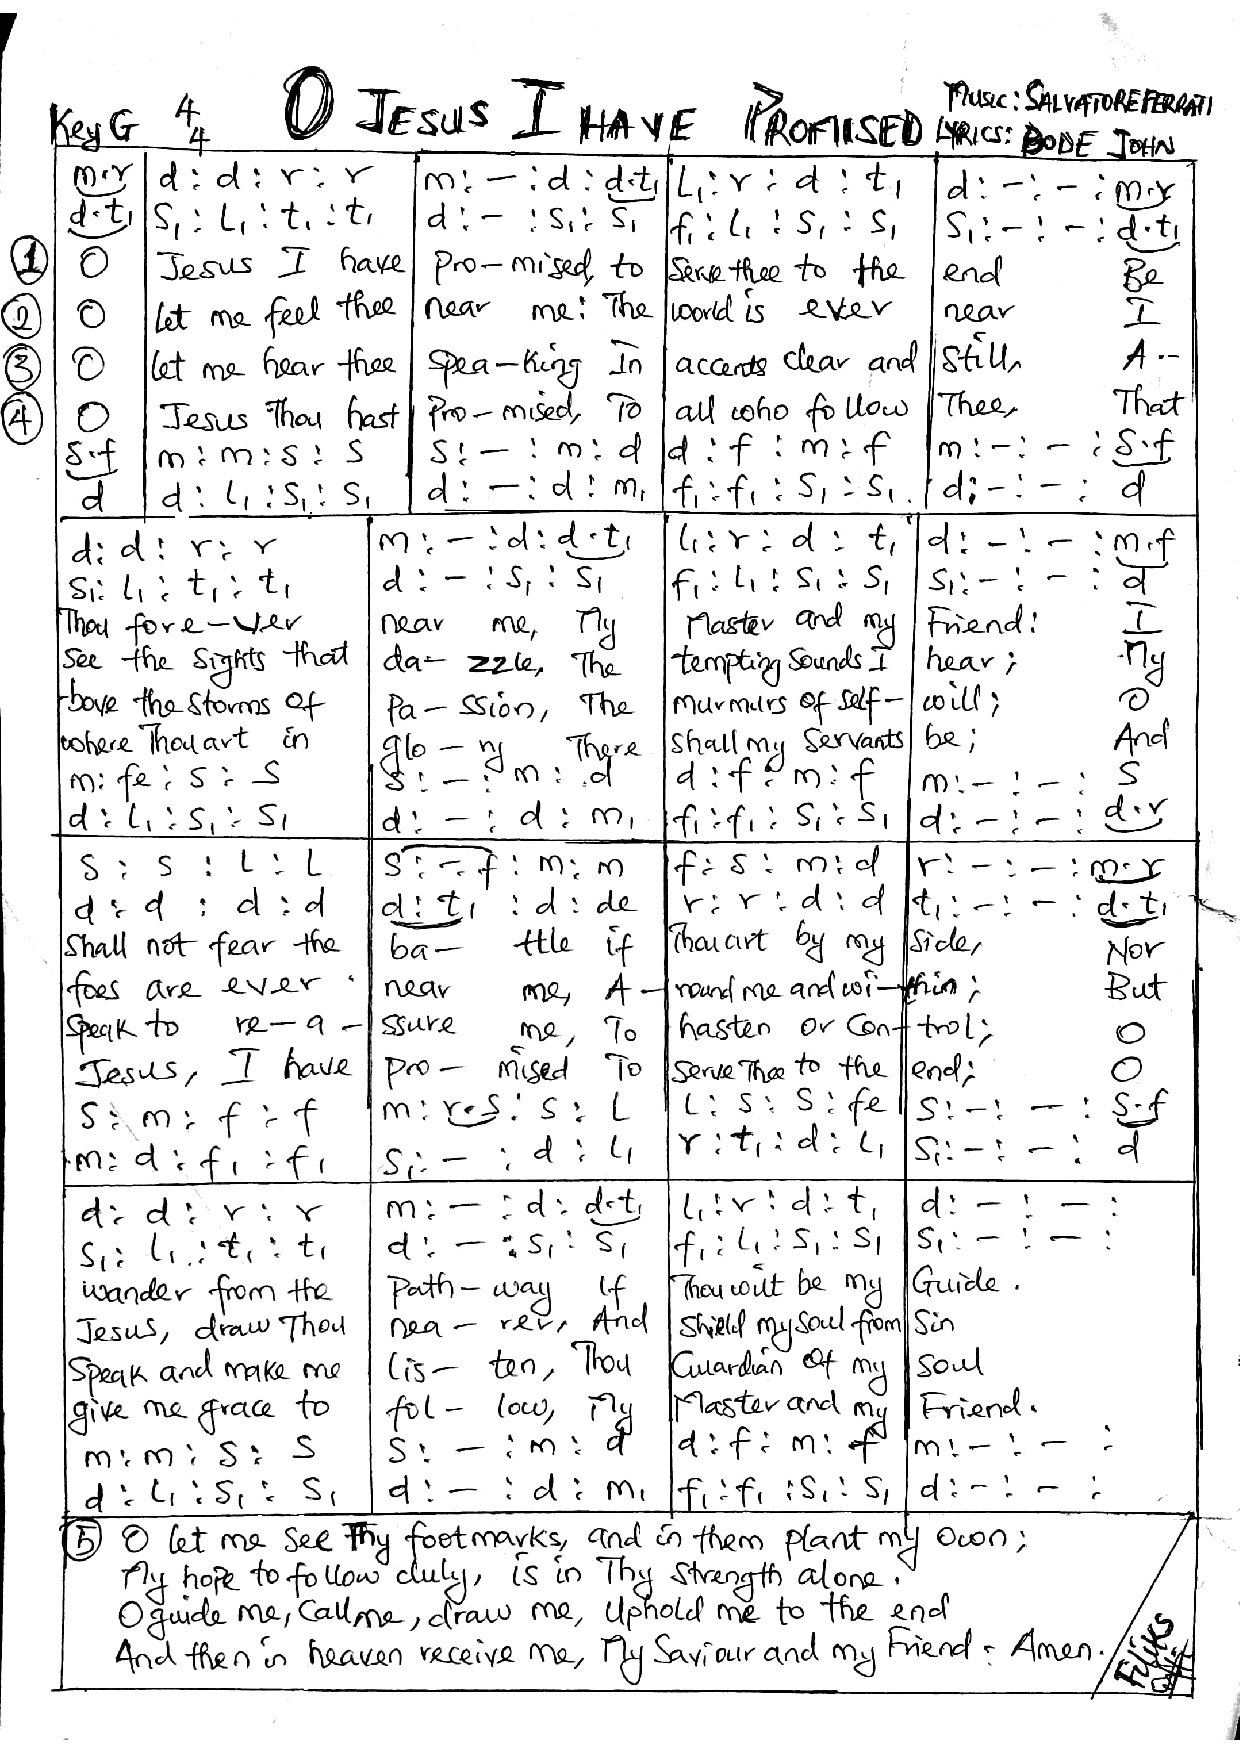 O JESUS I HAVE PROMISED
Key G 4/4
Music: SALVATORE FERRATI
LYRICS: BODE JOHN
m.r | d : d : r : r | m : – : d : d.t₁ | L₁ : r : d : t₁ | d : – : – : m.r
d.t₁ | S₁ : L₁ : t₁ : t₁ | d : – : S₁ : S₁ | f₁ : L₁ : S₁ : S₁ | S₁ : – : – : d.t₁
① O | Jesus I have | Pro-mised, to | Serve thee to the | end Be
② O | let me feel thee | near me: The | world is ever | near I
③ O | let me hear thee | Spea-king In | accents clear and | Still, A--
④ O | Jesus Thou hast | Pro-mised, To | all who follow | Thee, That
S.f | m : m : s : s | S : – : m : d | d : f : m : f | m : – : – : S.f
d | d : L₁ : S₁ : S₁ | d : – : d : m₁ | f₁ : f₁ : S₁ : S₁ | d : – : – : d
d : d : r : r | m : – : d : d.t₁ | L₁ : r : d : t₁ | d : – : – : m.f
S₁ : L₁ : t₁ : t₁ | d : – : S₁ : S₁ | f₁ : L₁ : S₁ : S₁ | S₁ : – : – : d
Thou fore-ver | near me, My | Master and my | Friend: I
See the Sights that | da-zzle, The | tempting Sounds I | hear; My
-bove the Storms of | Pa-ssion, The | murmurs of self- | will; O
where Thou art in | glo-ry There | Shall my Servants | be; And
m : fe : S : S | S : – : m : d | d : f : m : f | m : – : – : S
d : L₁ : S₁ : S₁ | d : – : d : m₁ | f₁ : f₁ : S₁ : S₁ | d : – : – : d.r
S : S : L : L | S : –f : m : m | f : S : m : d | r : – : – : m.r
d : d : d : d | d : t₁ : d : de | r : r : d : d | t₁ : – : – : d.t₁
Shall not fear the | ba-ttle if | Thou art by my | Side, Nor
foes are ever | near me, A- | round me and wi- | thin; But
Speak to re-a- | ssure me, To | hasten or Con- | trol; O
Jesus, I have | pro-mised To | Serve Thee to the | end; O
S : m : f : f | m : r.S : S : L | L : S : S : fe | S : – : – : S.f
m : d : f₁ : f₁ | S₁ : – : d : L₁ | r : t₁ : d : L₁ | S₁ : – : – : d
d : d : r : r | m : – : d : d.t₁ | L₁ : r : d : t₁ | d : – : – :
S₁ : L₁ : t₁ : t₁ | d : – : S₁ : S₁ | f₁ : L₁ : S₁ : S₁ | S₁ : – : – :
wander from the | Path-way If | Thou wilt be my | Guide.
Jesus, draw Thou | nea-rer, And | Shield my Soul from | Sin
Speak and make me | Lis-ten, Thou | Guardian Of my | Soul
give me grace to | fol-low, My | Master and my | Friend.
m : m : S : S | S : – : m : d | d : f : m : f | m : – : – :
d : L₁ : S₁ : S₁ | d : – : d : m₁ | f₁ : f₁ : S₁ : S₁ | d : – : – :
⑤ O let me See Thy footmarks, and in them plant my own;
My hope to follow duly, is in Thy Strength alone.
O guide me, Call me, draw me, Uphold me to the end
And then in heaven receive me, My Saviour and my Friend: Amen.